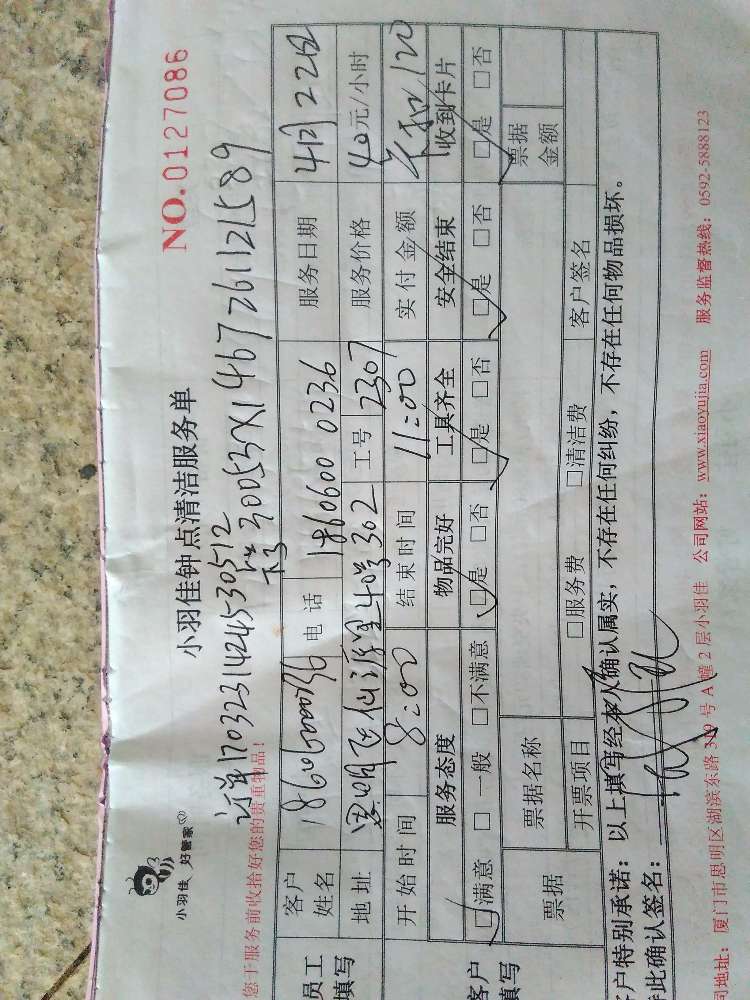 小羽佳 好管家
小羽佳钟点清洁服务单
NO.0127086
订单1703231424530512
您于服务前收拾好您的贵重物品！
员工填写
客户姓名 18606000236 电话 18606000236 服务日期 4月22日
地址 工号 2307 服务价格 40元/小时
开始时间 8:00 结束时间 11:00 实付金额 120
客户填写
服务态度 物品完好 工具齐全 安全结束 收到卡片
□满意 □一般 □不满意 □是 □否 □是 □否 □是 □否 □是 □否
票据 票据名称 票据金额
开票项目 □服务费 □清洁费 客户签名
户特别承诺：以上填写经本人确认属实，不存在任何纠纷，不存在任何物品损坏。
此确认签名：
司地址：厦门市思明区湖滨东路319号A幢2层小羽佳 公司网站：www.xiaoyujia.com 服务监督热线：0592-5888123